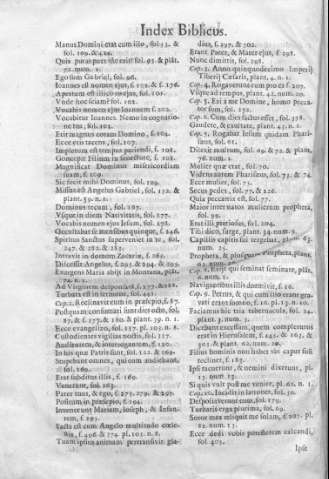 Index Biblicus.
Manus Domini erat cum illo, fol 53. &
fol. 109. & 424.
Quis putas puer iste erit? fol. 95 & plāt.
72. num. 1.
Ego sum Gabriel, fol. 96.
Ioannes est nomen ejus, f. 172. & f. 176.
Apertum est illico os ejus, fol. 101.
Unde hoc sciam? fol. 102.
Vocabis nomen ejus Ioannem f. 102.
Vocabitur Ioannes Nemo in cognatio-
ne tua, fol. 102.
Erit magnus coram Domino, f. 104.
Ecce eris tacens, fol. 107.
Impletum est tempus pariendi, f. 108.
Concepit Filium in senectute, f. 108.
Magnificat Dominus misericordiam
suam, f. 109.
Sic fecit mihi Dominus, fol. 109.
Missus est Angelus Gabriel, fol. 132. &
plant. 39. n. 1.
Dominus tecum, fol. 187.
Usque in diem Nativitatis, fol. 177.
Vocabis nomen ejus Iesum, fol. 278.
Occultabat se mensibus quinque, f. 146.
Spiritus Sanctus superveniet in te, fol.
247. & 282. & 283.
Intravit in domum Zachariæ, f. 165.
Discessit Angelus, f. 291. & 294. & 303.
Exurgens Maria abijt in Montana, plāt.
72. n. 1.
Ad Virginem desponsatam, f. 277. & 281.
Turbata est in sermone, fol. 441.
Cap. 2. Reclinaverunt in præsepio, f. 87.
Postquam consummati sunt dies octo, fol.
87. & f. 177. & 181. & plant. 39. n. 1.
Ecce evangelizo, fol. 117. pl. 103. n. 8.
Custodientes vigilias noctis, fol. 117.
Audientem, & interrogantem, f. 120.
In his quæ Patris sunt, fol. 122. & 169.
Stupebant omnes, qui eum audiebant,
fol. 169.
Erat subditus illis, f. 169.
Venerunt, fol. 263.
Pater tuus, & ego, f. 273. 279. & 297.
Positum in præsepio, f. 294.
Invenerunt Mariam, Ioseph, & Infan-
tem, f. 295.
Facta est cum Angelo multitudo cœle-
stis, f. 496 & 774. pl. 103. n. 8.
Tuam ipsius animam pertransivit gla-
dius, f. 297. & 302.
Erant Pater, & Mater ejus, f. 298.
Nunc dimittis, fol. 298.
Cap. 3. Anno quinquodecimo Imperij
Tiberij Cæsaris, plant. 4. n. 1.
Cap. 4. Rogaverunt eum pro ea f. 207.
Usque ad tempus, plant. 42. num. 20.
Cap. 5. Exi a me Domine, homo pecca-
tor sum, fol. 132.
Cap. 6. Cum dies factus esset, fol. 378.
Gaudete, & exultate, plant. 45. n. 1.
Cap. 7. Rogabat Iesum quidam Phari-
sæus, fol. 61.
Dilexit multum, fol. 69. & 72. & plant.
76. num. 1.
Mulier quæ erat, fol. 70.
Videns autem Pharisæus, fol. 73. & 74.
Ecce mulier, fol. 75.
Secus pedes, fol. 77. & 226.
Quia peccatrix est, fol. 77.
Maior inter natos mulierum propheta,
fol. 99.
Erat illi pretiosus, fol. 104.
Tibi dico, surge, plant. 34. num. 1.
Capillis capitis sui tergebat, plant. 63.
num. 23.
Propheta, & plusquam Propheta, plant.
62. num. 22.
Cap. 8. Exijt qui seminat seminare, plāt.
4. num. 1.
Navigantibus illis dormivit, f. 10.
Cap. 9. Petrus, & qui cum illo erant gra-
vati erant somno, f. 10. pl. 13. n. 10.
Faciamus hic tria tabernacula, fol. 24.
plant. 2. num. 1.
Dicebant excessum, quem completurus
erat in Hierusalem, f. 145. & 163. &
303. & plant. 62. num. 20.
Filius hominis non habet ubi caput suũ
reclinet, f. 163.
Ipsi tacuerunt, & nemini dixerunt, pl.
13. num. 13.
Si quis vult post me venire, pl. 62. n. 1.
Cap. 10. Incidit in latrones, fol. 30.
Despoliaverunt eum, fol. 179.
Turbaris erga plurima, fol. 69.
Soror mea reliquit me solam, f. 205. pl.
13. num. 12.
Ecce dedi vobis potestatem calcandi,
fol. 405.
Ipse